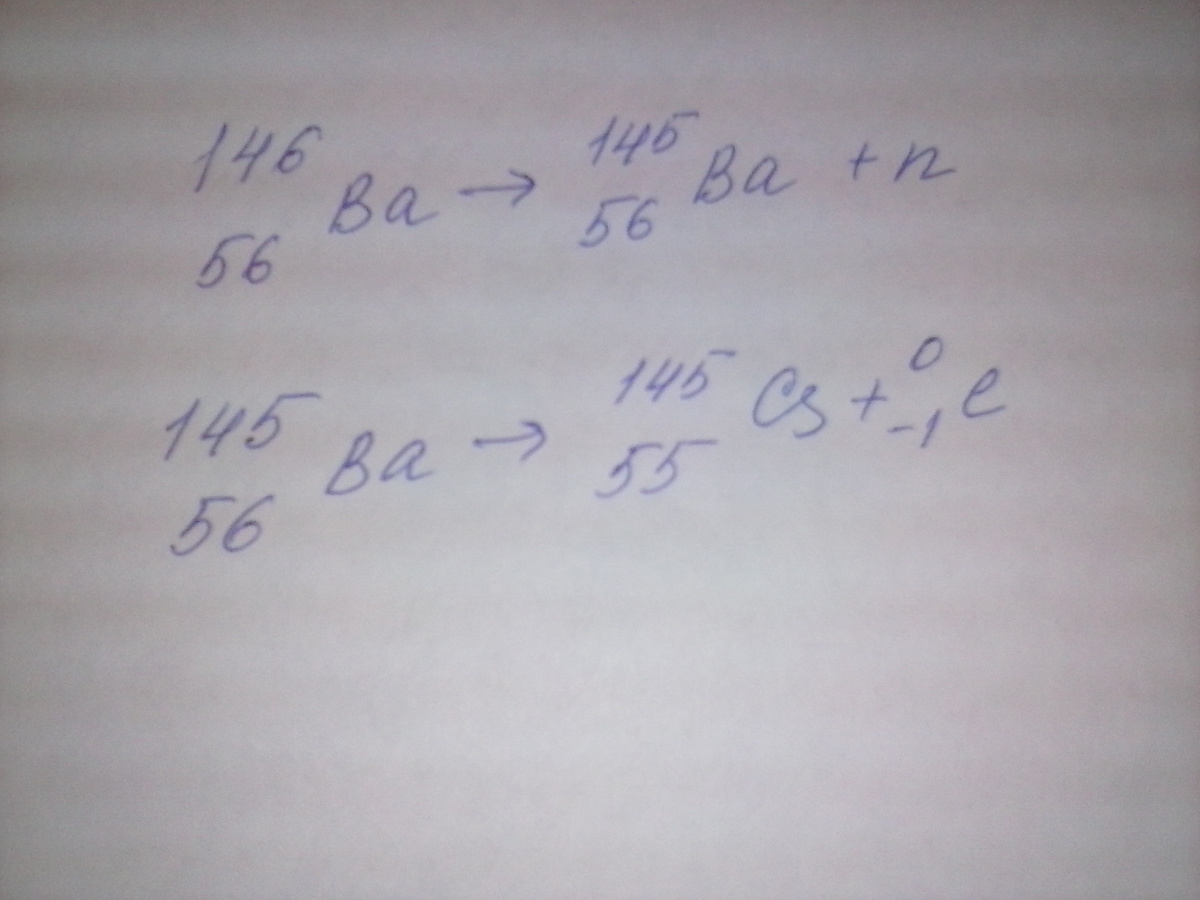 ¹⁴⁶₅₆Ba → ¹⁴⁵₅₆Ba + n
¹⁴⁵₅₆Ba → ¹⁴⁵₅₅Cs + ⁰₋₁e